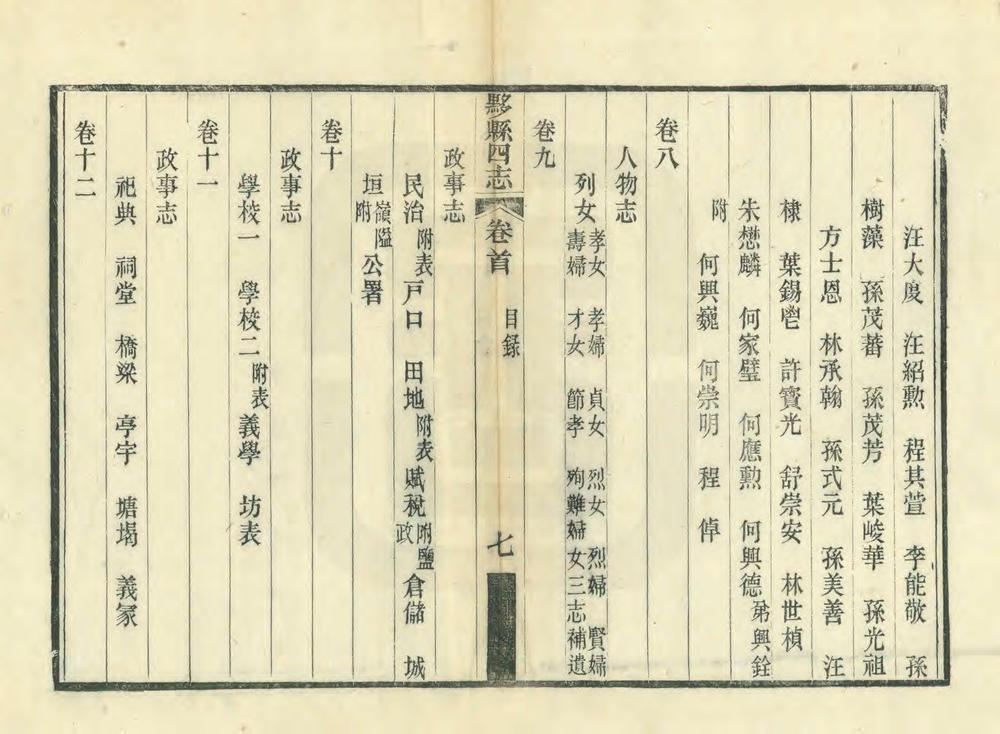 汪大度 汪紹勲 程其萱 李能敬 孫
樹藻 孫茂蕃 孫茂芳 葉峻華 孫光祖
方士恩 林承翰 孫式元 孫美善 汪
棣 葉錫鬯 許寶光 舒崇安 林世楨
朱懋麟 何家璧 何應勲 何興德弟興銓
附 何興巍 何崇明 程倬
卷八
人物志
列女孝女 孝婦 貞女 烈女 烈婦 賢婦
壽婦 才女 節孝 殉難婦女三志補遺
卷九
黟縣四志 卷首 目録 七
政事志
民治附表戸口 田地附表賦稅附鹽政倉儲 城
垣嶺隘附公署
卷十
政事志
學校一 學校二附表義學 坊表
卷十一
政事志
祀典 祠堂 橋梁 亭宇 塘堨 義冢
卷十二